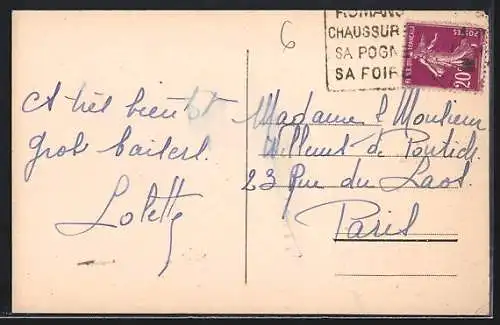 6
ROMANS
CHAUSSUR
SA POGN
SA FOIR
POSTES
20
A très bientôt
Gros baisers.
Lolette
Madame & Monsieur
de
23 Rue du Laos.
Paris